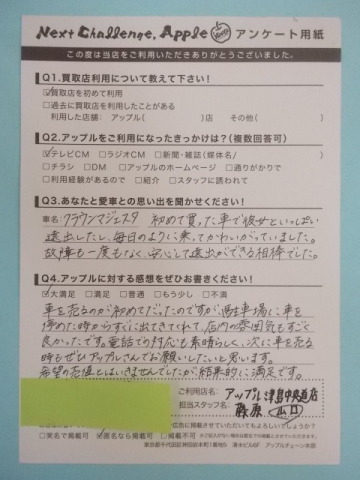 Next Challenge. Apple アンケート用紙
この度は当店をご利用いただきありがとうございました。
Q1.買取店利用について教えて下さい!
☑買取店を初めて利用
□過去に買取店を利用したことがある
利用した店舗: アップル( )店 その他( )
Q2.アップルをご利用になったきっかけは?(複数回答可)
☑テレビCM □ラジオCM □新聞・雑誌(媒体名/ )
□チラシ □DM □アップルのホームページ □通りがかりで
□利用経験があるので □紹介 □スタッフに誘われて
Q3.あなたと愛車との思い出を聞かせてください!
車名:クラウンマジェスタ 初めて買った車で彼女といっぱい
遠出したし、毎日のように乗ってかわいがっていました。
故障も一度もなく、安心して遠出ができる相棒でした。
Q4.アップルに対する感想をぜひお書きください!
☑大満足 □満足 □普通 □もう少し □不満
車を売るのが初めてだったのですが、駐車場に車を
停めた時からすぐに出てきてくれて、店内の雰囲気もすごく
良かったです。電話での対応も素晴らしく、次に車を売る
時もぜひアップルさんでお願いしたいと思います。
希望の売値とはいきませんでしたが結果的に満足です。
ご利用店名: アップル津島中央道店
担当スタッフ名: 藤原 山口
広告に掲載させていただいてもよろしいでしょうか?
□実名で掲載可 ☑匿名なら掲載可 □掲載不可
東京都千代田区神田岩本町1番地5 清水ビル6F アップルチェーン本部